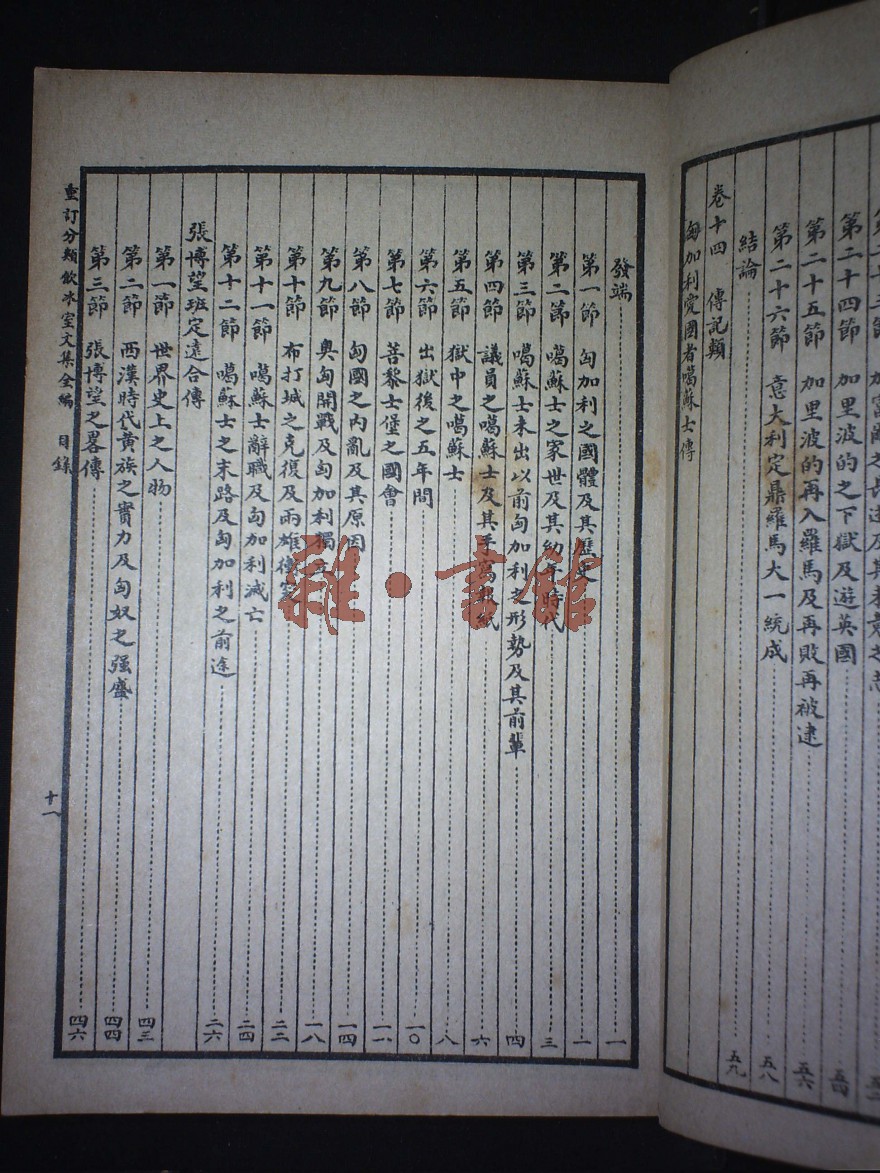 第二十四節 加里波的之下獄及遊英國 五四
第二十五節 加里波的再入羅馬及再敗再被逮 五六
第二十六節 意大利定鼎羅馬大一統成 五八
結論 五九
卷十四 傳記類
匈加利愛國者噶蘇士傳
發端 一
第一節 匈加利之國體及其歷史 一
第二節 噶蘇士之家世及其幼年時代 三
第三節 噶蘇士未出以前匈加利之形勢及其前輩 四
第四節 議員之噶蘇士及其手寫報紙 六
第五節 獄中之噶蘇士 八
第六節 出獄後之五年間 一〇
第七節 菩黎士堡之國會 一一
第八節 匈國之內亂及其原因 一四
第九節 奧匈開戰及匈加利獨立 一八
第十節 布打城之克復及兩雄衝突 二二
第十一節 噶蘇士辭職及匈加利滅亡 二四
第十二節 噶蘇士之末路及匈加利之前途 二六
張博望班定遠合傳
第一節 世界史上之人物 四三
第二節 西漢時代黃族之實力及匈奴之强盛 四四
第三節 張博望之畧傳 四六
重訂分類飲冰室文集全編 目錄
十一
雜·書館